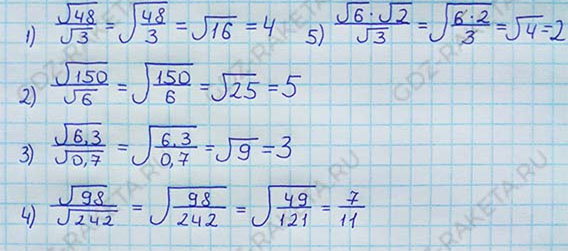 1) √48/√3 = √(48/3) = √16 = 4 5) √6·√2/√3 = √(6·2/3) = √4 = 2
2) √150/√6 = √(150/6) = √25 = 5
3) √6,3/√0,7 = √(6,3/0,7) = √9 = 3
4) √98/√242 = √(98/242) = √(49/121) = 7/11
GDZ-RAKETA.RU